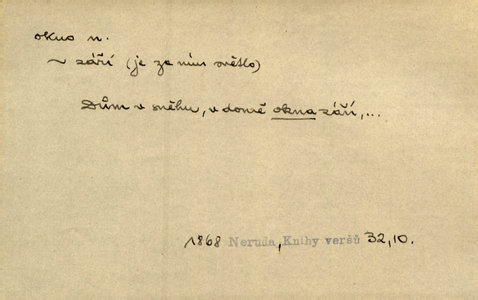 okno n.
~ září (je za ním světlo)
Dům v sněhu, v domě okna září,...
1868 Neruda, Knihy veršů 32,10.